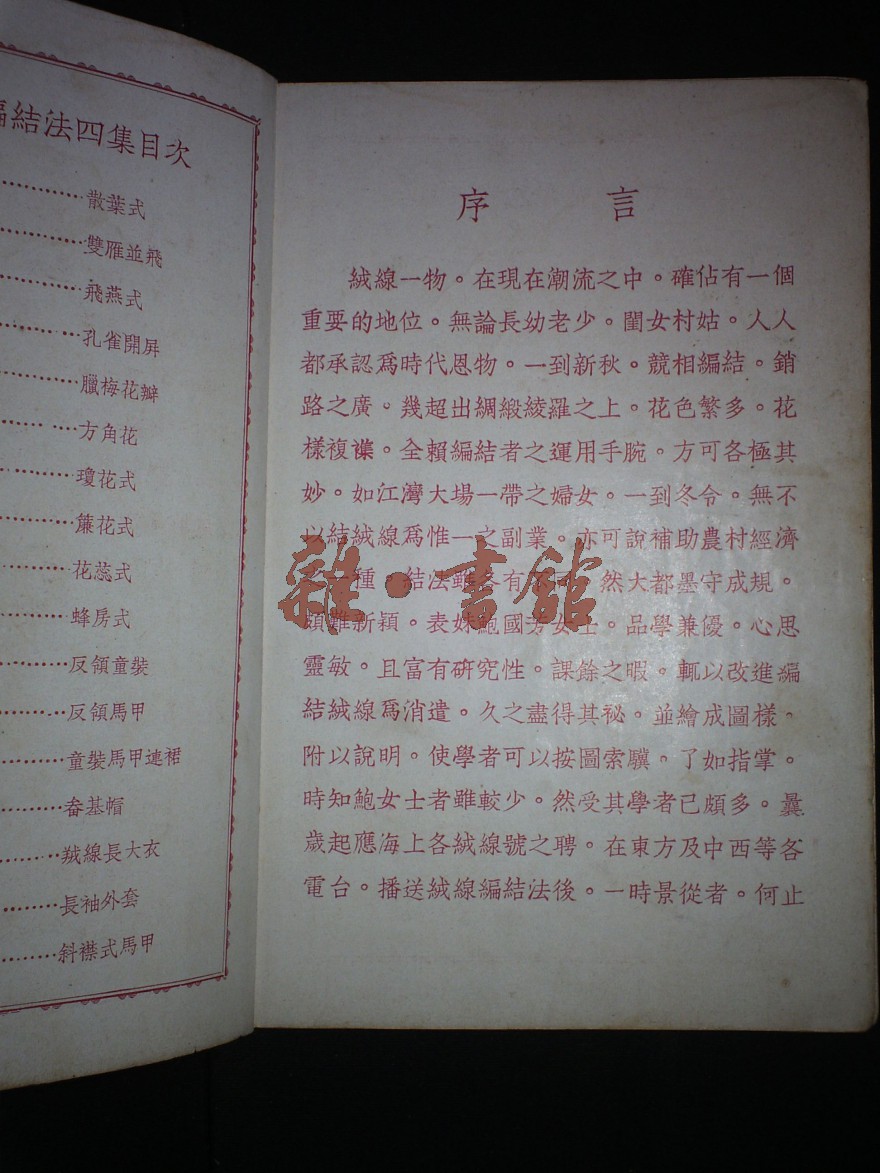 編結法四集目次
散葉式
雙雁並飛
飛燕式
孔雀開屏
臘梅花瓣
方角花
瓊花式
簾花式
花蕊式
蜂房式
反領童裝
反領馬甲
童裝馬甲連裙
畚基帽
羢線長大衣
長袖外套
斜襟式馬甲
序言
絨線一物。在現在潮流之中。確佔有一個
重要的地位。無論長幼老少。閨女村姑。人人
都承認爲時代恩物。一到新秋。競相編結。銷
路之廣。幾超出綢緞綾羅之上。花色繁多。花
樣複襍。全賴編結者之運用手腕。方可各極其
妙。如江灣大場一帶之婦女。一到冬令。無不
以結絨線爲惟一之副業。亦可說補助農村經濟
一種。結法雖各有。然大都墨守成規。
頗難新穎。表妹鮑國芳女士。品學兼優。心思
靈敏。且富有研究性。課餘之暇。輒以改進編
結絨線爲消遣。久之盡得其祕。並繪成圖樣。
附以說明。使學者可以按圖索驥。了如指掌。
時知鮑女士者雖較少。然受其學者已頗多。曩
歲起應海上各絨線號之聘。在東方及中西等各
電台。播送絨線編結法後。一時景從者。何止
雜·書館